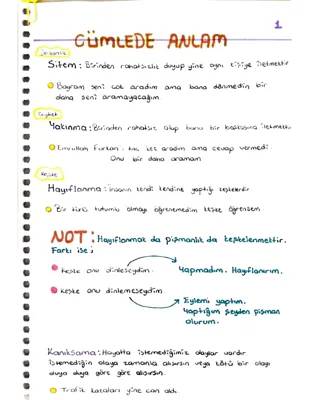 1
CÜMLEDE ANLAM
Sitem: Birinden rahatsızlık duyup yine aynı kişiye iletmektir
Bayram seni çok aradım ama bana dönmedin bir
daha seni aramayacağım
Yakınma: Birinden rahatsız olup bunu bir başkasına iletmektir
Emrullah Furkan'ı kaç kez aradım ama cevap vermedi
Onu bir daha aramam
Keşke
Hayıflanma: insanın kendi kendine yaptığı keşkelerdir
Bir türlü tutumlu olmayı öğrenemedim keşke öğrensem
NOT: Hayıflanmak da pişmanlık da keşkelenmektir.
Farkı ise;
Keşke onu dinleseydim.
Yapmadım. Hayıflanırım.
Keşke onu dinlemeseydim
Eylemi yaptım.
Yaptığım şeyden pişman
olurum.
Kanıksama: Hayatta istemediğimiz olaylar vardır
İstemediğin olaya zamanla alışırsın veya kötü bir olayı
duya duya göre göre alışırsın.
Trafik kazaları yine can aldı.